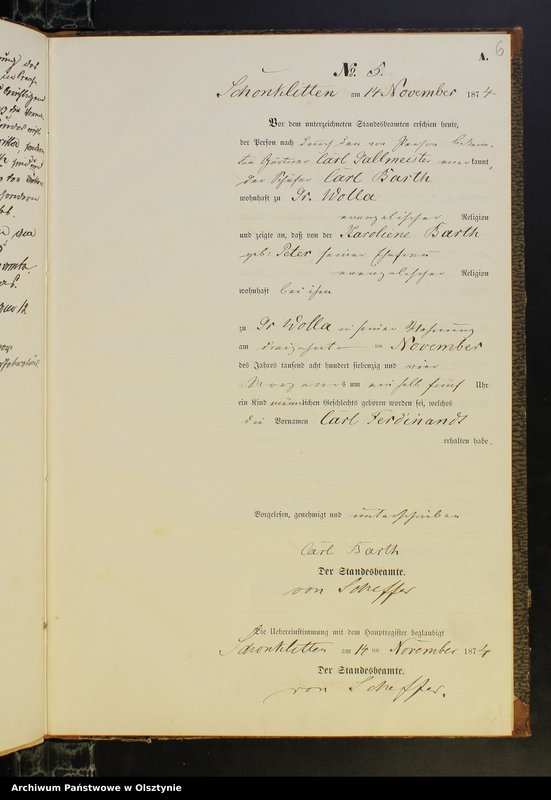 6
A.
No. 5.
Schönklitten am 14 November 1874
Vor dem unterzeichneten Standesbeamten erschien heute,
der Person nach durch den von Person bekann-
ten Gärtner Carl Sallmeister anerkannt,
der Schäfer Carl Barth
wohnhaft zu Gr. Wolla
evangelischer Religion
und zeigte an, daß von der Karoline Barth
geb. Peter seiner Ehefrau
evangelischer Religion
wohnhaft bei ihm
zu Gr Wolla in seiner Wohnung
am dreizehnten November
des Jahres tausend acht hundert siebenzig und vier
Morgens um ein halb fünf Uhr
ein Kind männlichen Geschlechts geboren worden sei, welches
die Vornamen Carl Ferdinand
erhalten habe.
Vorgelesen, genehmigt und unterschrieben
Carl Barth
Der Standesbeamte.
von Scheffer
Die Uebereinstimmung mit dem Hauptregister beglaubigt
Schönklitten am 14 ten November 1874
Der Standesbeamte.
von Scheffer.
Archiwum Państwowe w Olsztynie